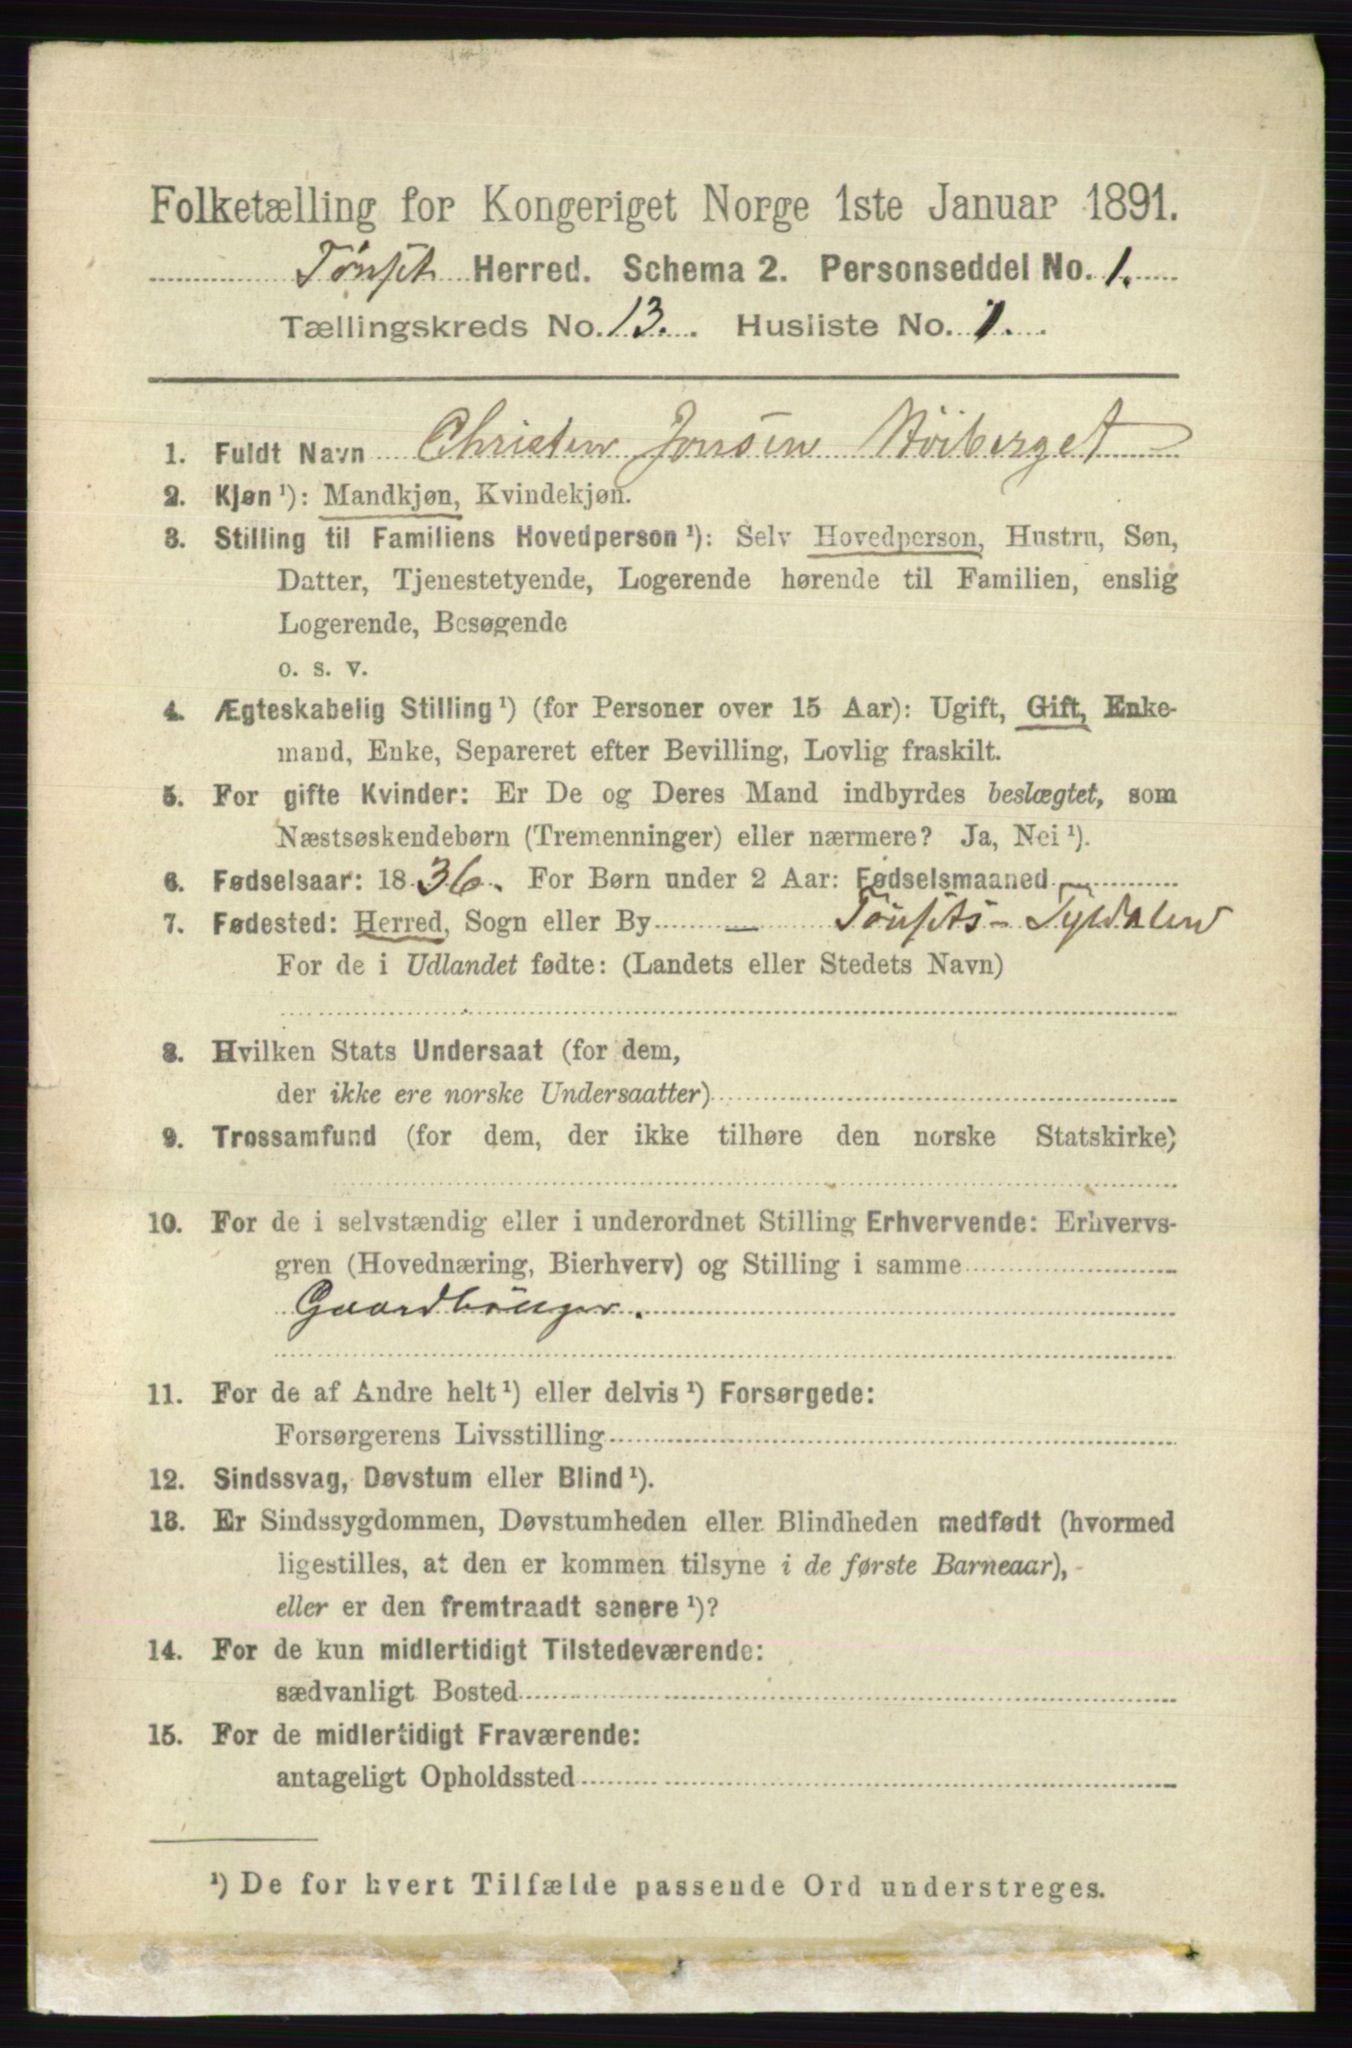 Folketælling for Kongeriget Norge 1ste Januar 1891.
Tönset Herred. Schema 2. Personseddel No. 1.
Tællingskreds No. 13. Husliste No. 1.
1. Fuldt Navn Christen Jonsen Höiberget
2. Kjøn ¹): Mandkjøn, Kvindekjøn.
3. Stilling til Familiens Hovedperson ¹): Selv Hovedperson, Hustru, Søn,
Datter, Tjenestetyende, Logerende hørende til Familien, enslig
Logerende, Besøgende
o. s. v.
4. Ægteskabelig Stilling ¹) (for Personer over 15 Aar): Ugift, Gift, Enke-
mand, Enke, Separeret efter Bevilling, Lovlig fraskilt.
5. For gifte Kvinder: Er De og Deres Mand indbyrdes beslægtet, som
Næstsøskendebørn (Tremenninger) eller nærmere? Ja, Nei ¹).
6. Fødselsaar: 1836. For Børn under 2 Aar: Fødselsmaaned
7. Fødested: Herred, Sogn eller By — Tönsets - Tyldalen
For de i Udlandet fødte: (Landets eller Stedets Navn)
8. Hvilken Stats Undersaat (for dem,
der ikke ere norske Undersaatter)
9. Trossamfund (for dem, der ikke tilhøre den norske Statskirke)
10. For de i selvstændig eller i underordnet Stilling Erhvervende: Erhvervs-
gren (Hovednæring, Bierhverv) og Stilling i samme
Gaardbruger.
11. For de af Andre helt ¹) eller delvis ¹) Forsørgede:
Forsørgerens Livsstilling
12. Sindssvag, Døvstum eller Blind ¹).
13. Er Sindssygdommen, Døvstumheden eller Blindheden medfødt (hvormed
ligestilles, at den er kommen tilsyne i de første Barneaar),
eller er den fremtraadt senere ¹)?
14. For de kun midlertidigt Tilstedeværende:
sædvanligt Bosted
15. For de midlertidigt Fraværende:
antageligt Opholdssted
¹) De for hvert Tilfælde passende Ord understreges.